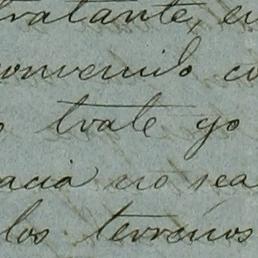 tratante, en
convenido co
trate yo
acia no sea
los terrenos